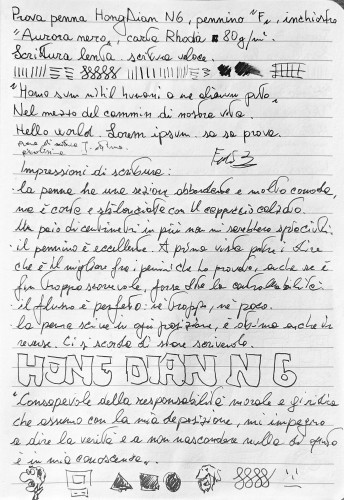 Prova penna HongDian N6, pennino "F", inchiostro
"Aurora nero", carta Rhodia 80g/m².
Scrittura lenta. scrittura veloce.
"Homo sum nihil humani a me alienum puto"
Nel mezzo del cammin di nostra vita.
Hello world. Lorem ipsum. sa sa prova.
prova di scrittura
Impressioni di scrittura:
· la penna ha una sezione abbondante e molto comoda,
ma è corta e sbilanciata con il cappuccio calzato.
Un paio di centimetri in più non mi sarebbero spiaciuti.
· il pennino è eccellente. A prima vista potrei dire
che è il migliore fra i pennini che ho provato, anche se è
fin troppo scorrevole, forse oltre la controllabilità.
· il flusso è perfetto: nè troppo, nè poco.
· la penna scrive in ogni posizione, è ottima anche in
reverse. Ci si scorda di stare scrivendo.
HONG DIAN N 6
"Consapevole della responsabilità morale e giuridica
che assumo con la mia deposizione, mi impegno
a dire la verità e a non nascondere nulla di quanto
è in mia conoscenza".